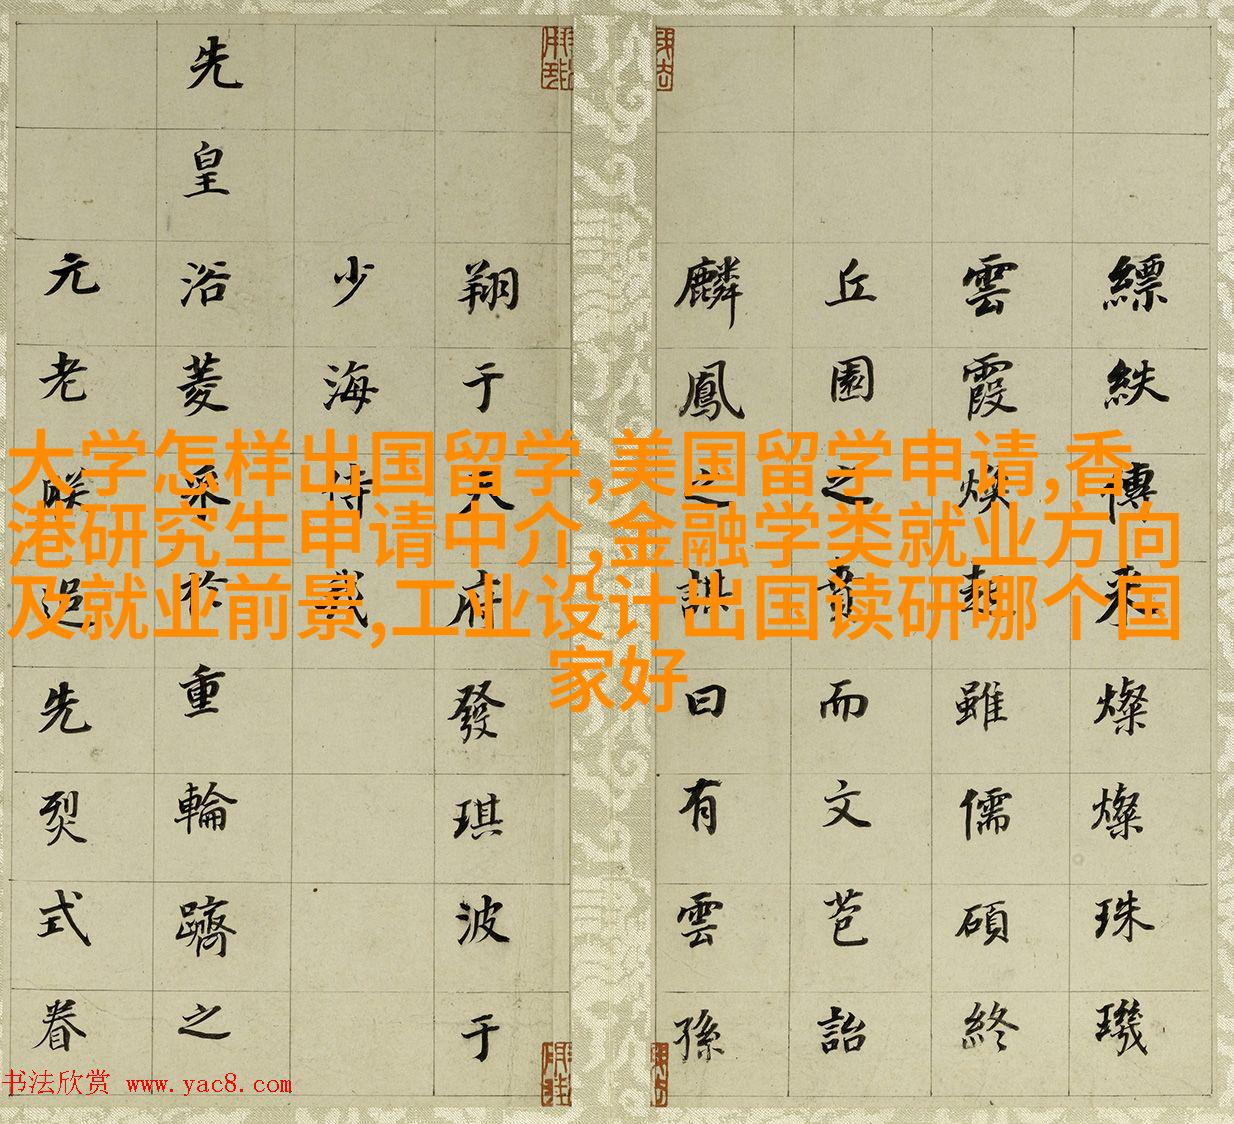 縹紩傳来燦燦珠璣
雲霞煥雖儒碩終
丘園之而文苞詒
麟鳳之曰有雲孫
翔于天府發琪波于
少海侍
先皇浴菱采於重輪躋之
元老追先烈式眷
大学怎样出国留学,美国留学申请,香
港研究生申请中介,金融学类就业方向
及就业前景,工业设计出国读研哪个国
家好
书法欣赏 www.yac8.com